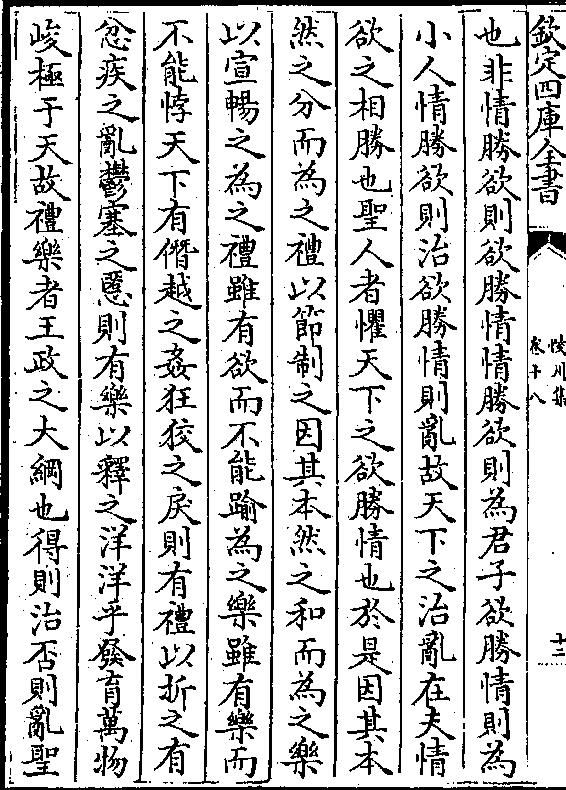 欽定四庫全書
陵川集
卷十八
十二
也非情勝欲則欲勝情情勝欲則為君子欲勝情則為
小人情勝欲則治欲勝情則亂故天下之治亂在夫情
欲之相勝也聖人者懼天下之欲勝情也於是因其本
然之分而為之禮以節制之因其本然之和而為之樂
以宣暢之為之禮雖有欲而不能踰為之樂雖有樂而
不能悖天下有僭越之姦狂狡之戾則有禮以折之有
忿疾之亂鬱塞之慝則有樂以釋之洋洋乎發育萬物
峻極于天故禮樂者王政之大綱也得則治否則亂聖